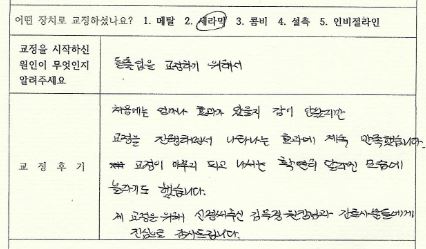 어떤 장치로 교정하셨나요? 1. 메탈 2. 세라믹 3. 콤비 4. 설측 5. 인비절라인
교정을 시작하신
원인이 무엇인지
알려주세요
돌출입을 교정하기 위해서
교 정 후 기
처음에는 얼마나 효과가 있을지 감이 안왔지만
교정을 진행하면서 나타나는 효과에 계속 만족했습니다.
교정이 마무리 되고 나서는 확연히 달라진 모습에
놀라기도 했습니다.
제 교정을 위해 신경써주신 김 원장님과 간호사분들에게
진심으로 감사드립니다.